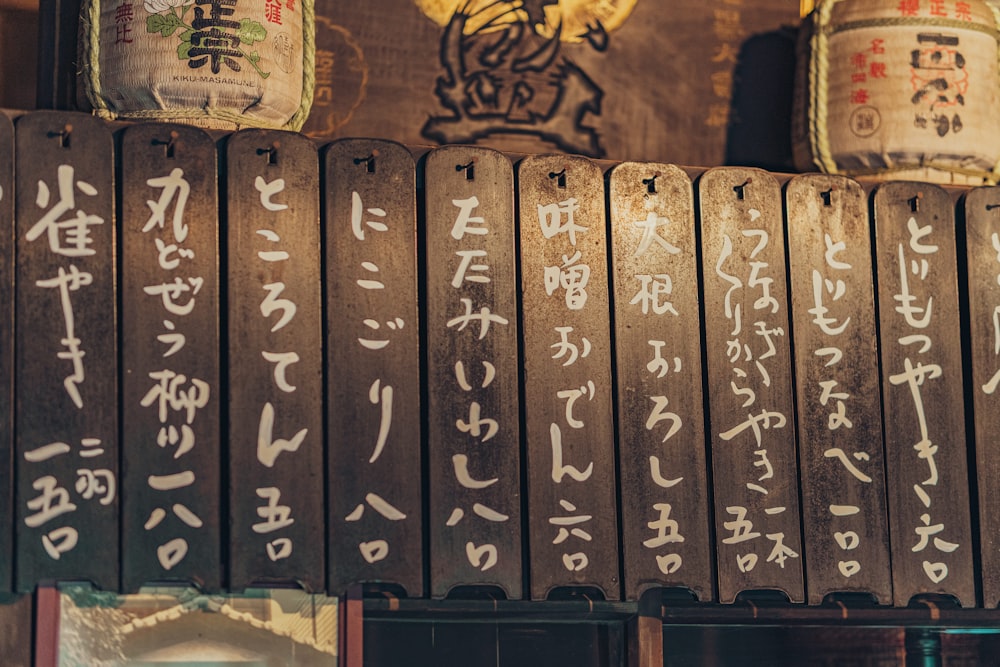 正宗
KIKU-MASAMUNE
正宗
とりもつやき 六〇
どじょうなべ 一〇〇
うなぎ
くりからやき 一本 五〇
大根おろし 五〇
味噌おでん 六〇
たたみいわし 八〇
にこごり 八〇
ところてん 五〇
丸どぜう柳川 一八〇
雀やき 二羽 一五〇